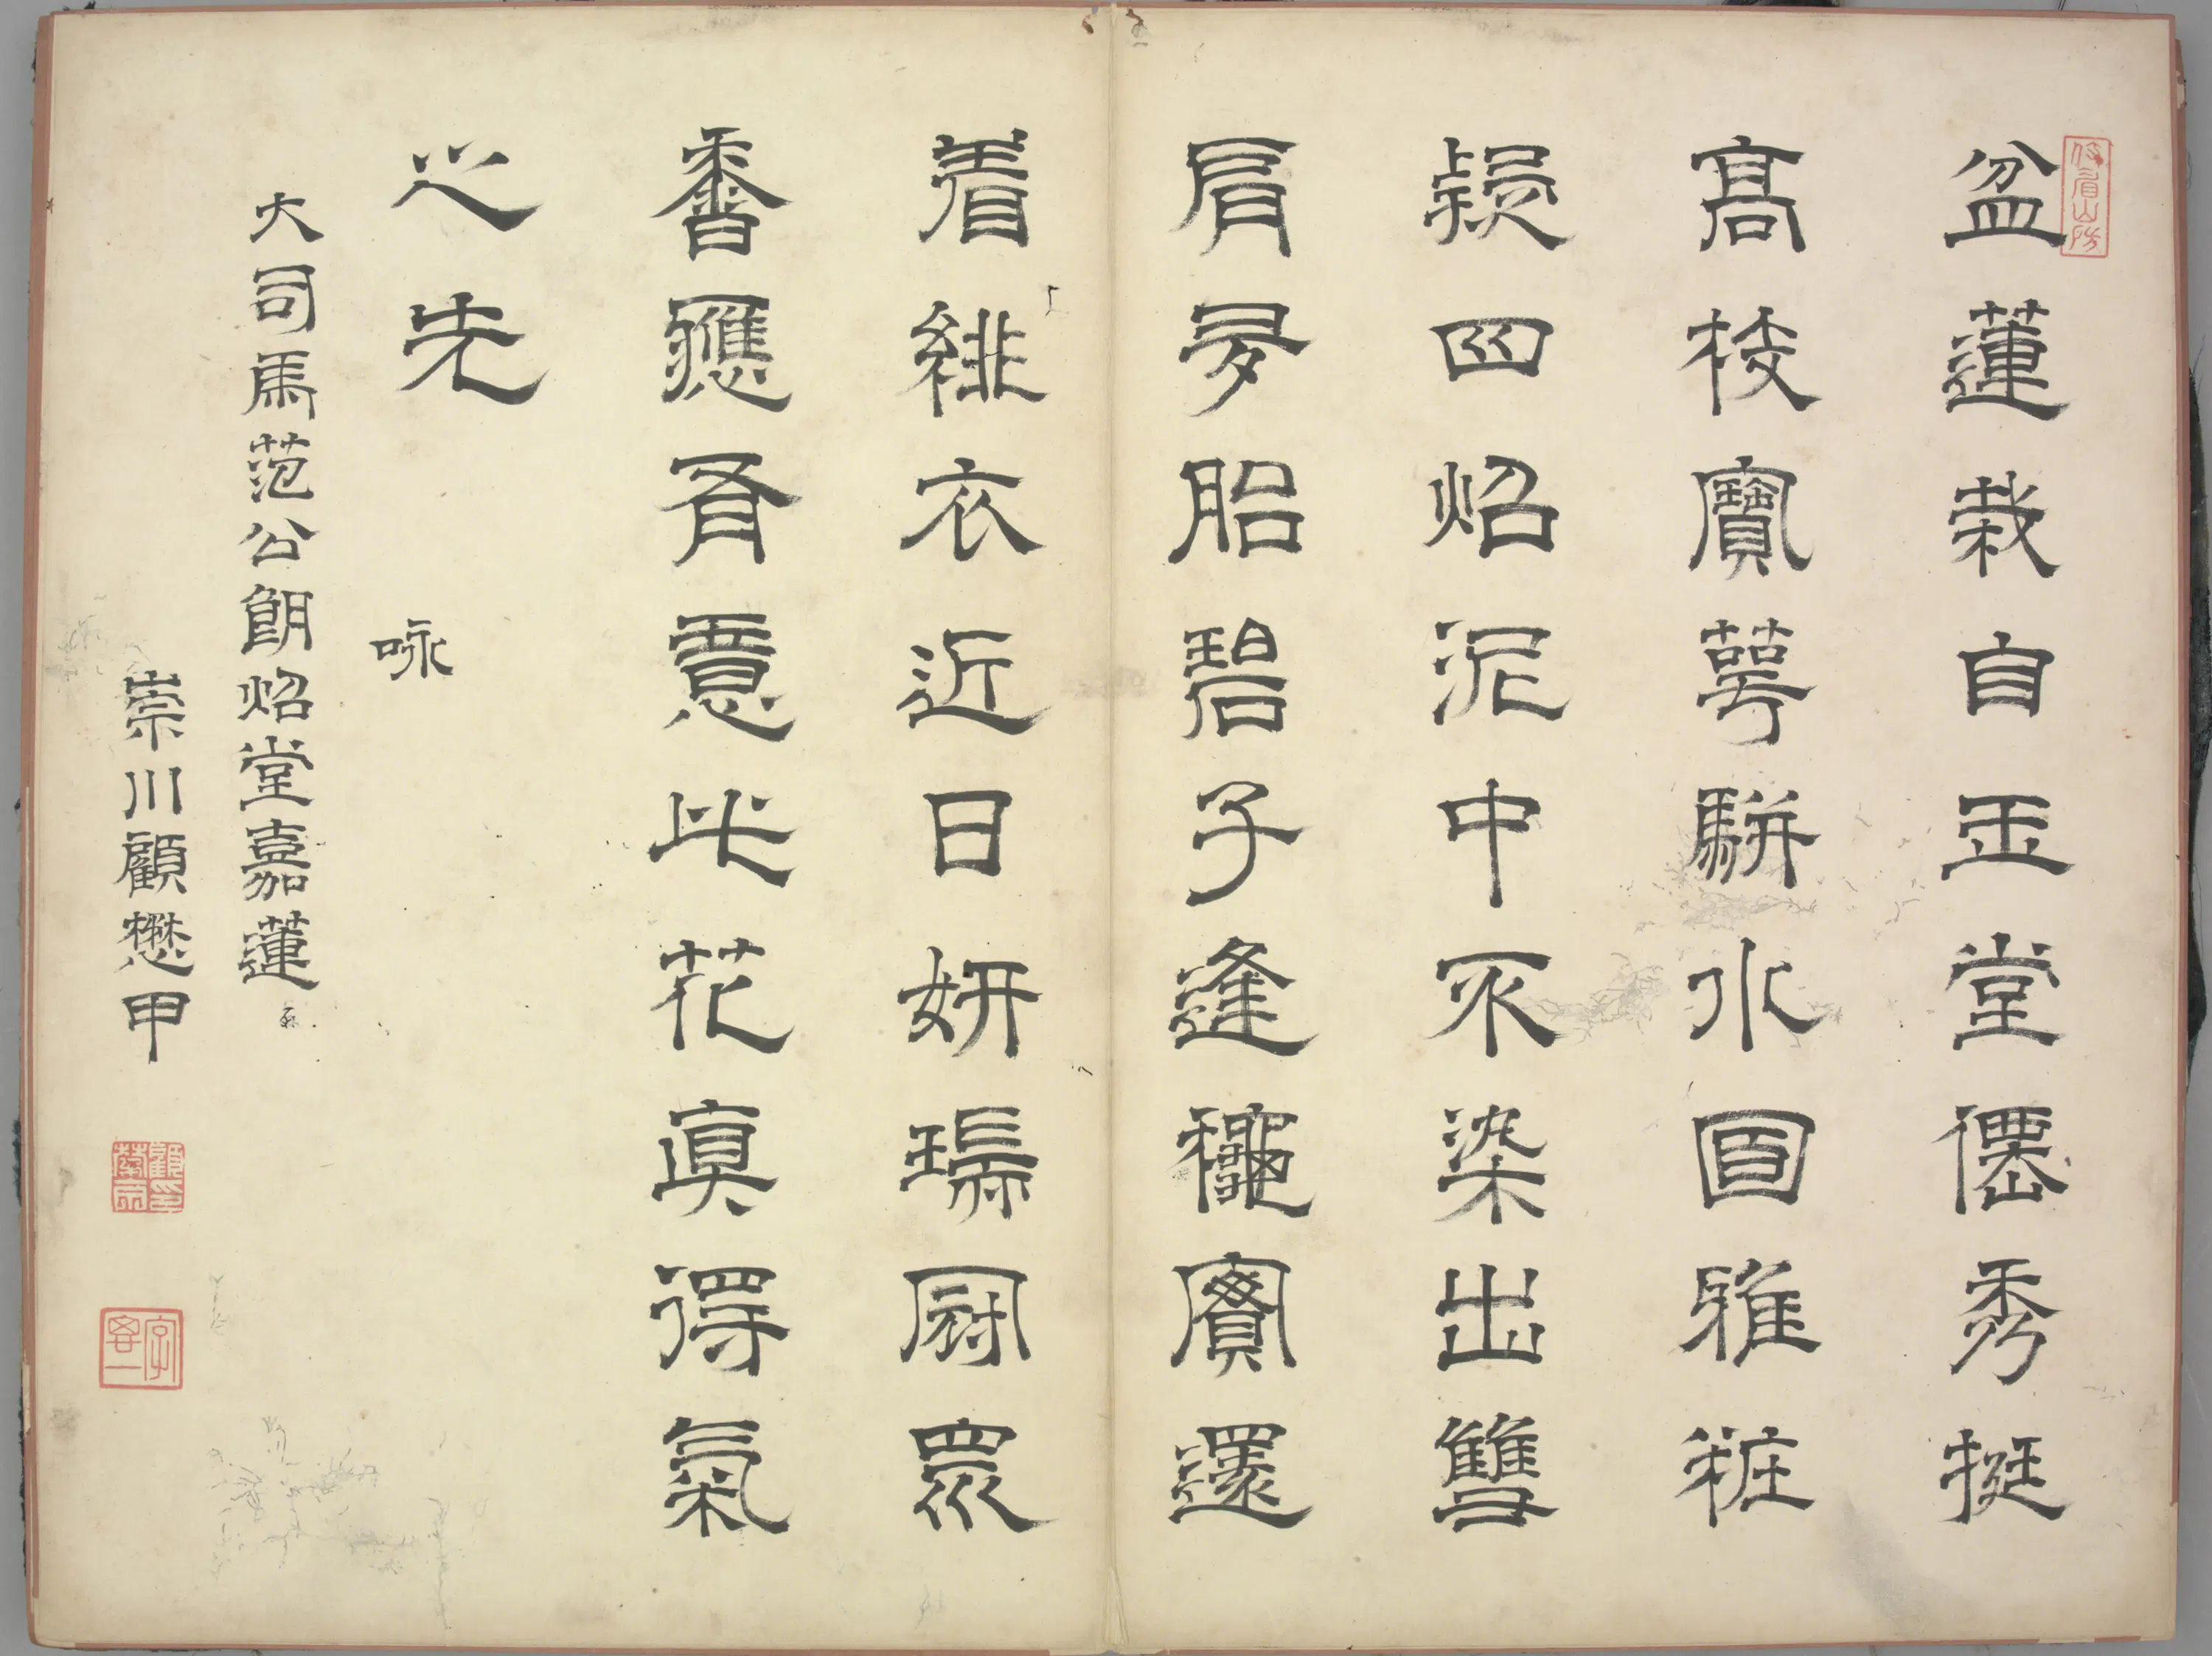 盆蓮栽自玉堂僊秀挺
高枝寶萼駢水面雅粧
疑四炤泥中不染出雙
肩夢胎碧子逢龝實還
着緋衣近日妍瑞冠眾
香應有意此花眞得氣
之先
咏
大司馬范公朗炤堂嘉蓮
崇川顧懋甲